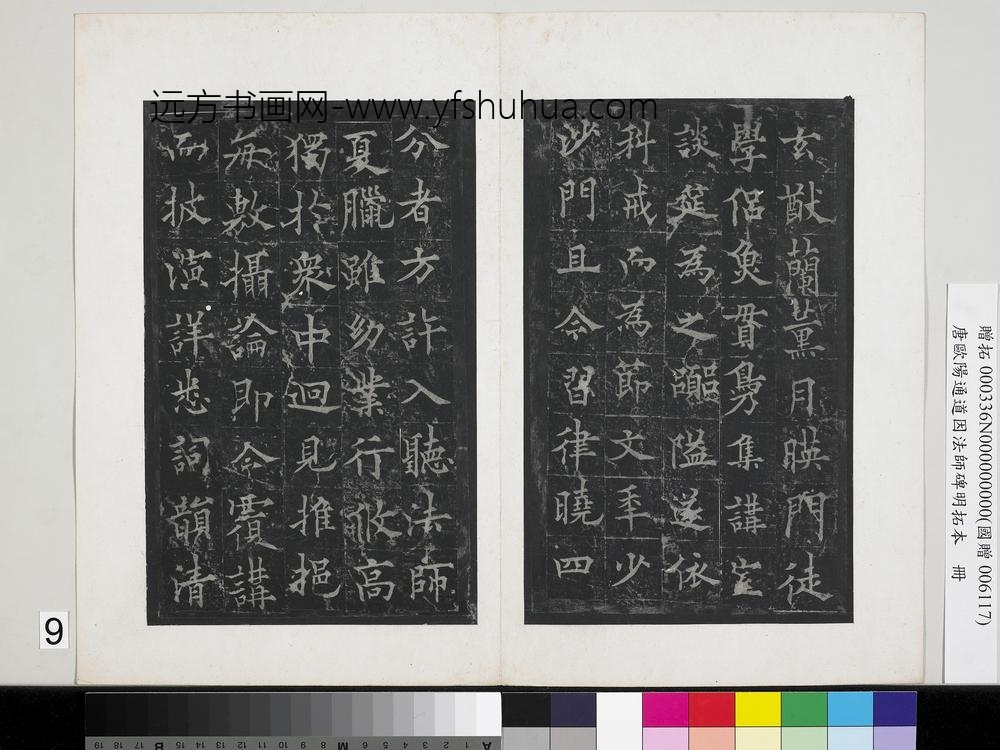 远方书画网-www.yfshuhua.com
玄猷蘭薰月暎門徒
學侶魚貫鳧集講堂
談筵為之嘔隘遂依
科戒而為節文年少
沙門且令習律曉四
分者方許入聽法師
夏臘雖幼業行攸高
獨於衆中迥見推挹
每敷攝論即令覆講
而披演詳悉詞韻清
贈拓 000336N000000000(國贈 006117)
唐歐陽通道因法師碑明拓本 冊
9
19 18 17 16 15 14 13 12 11 10 9 8 7 6 5 4 3 2 1
B M A